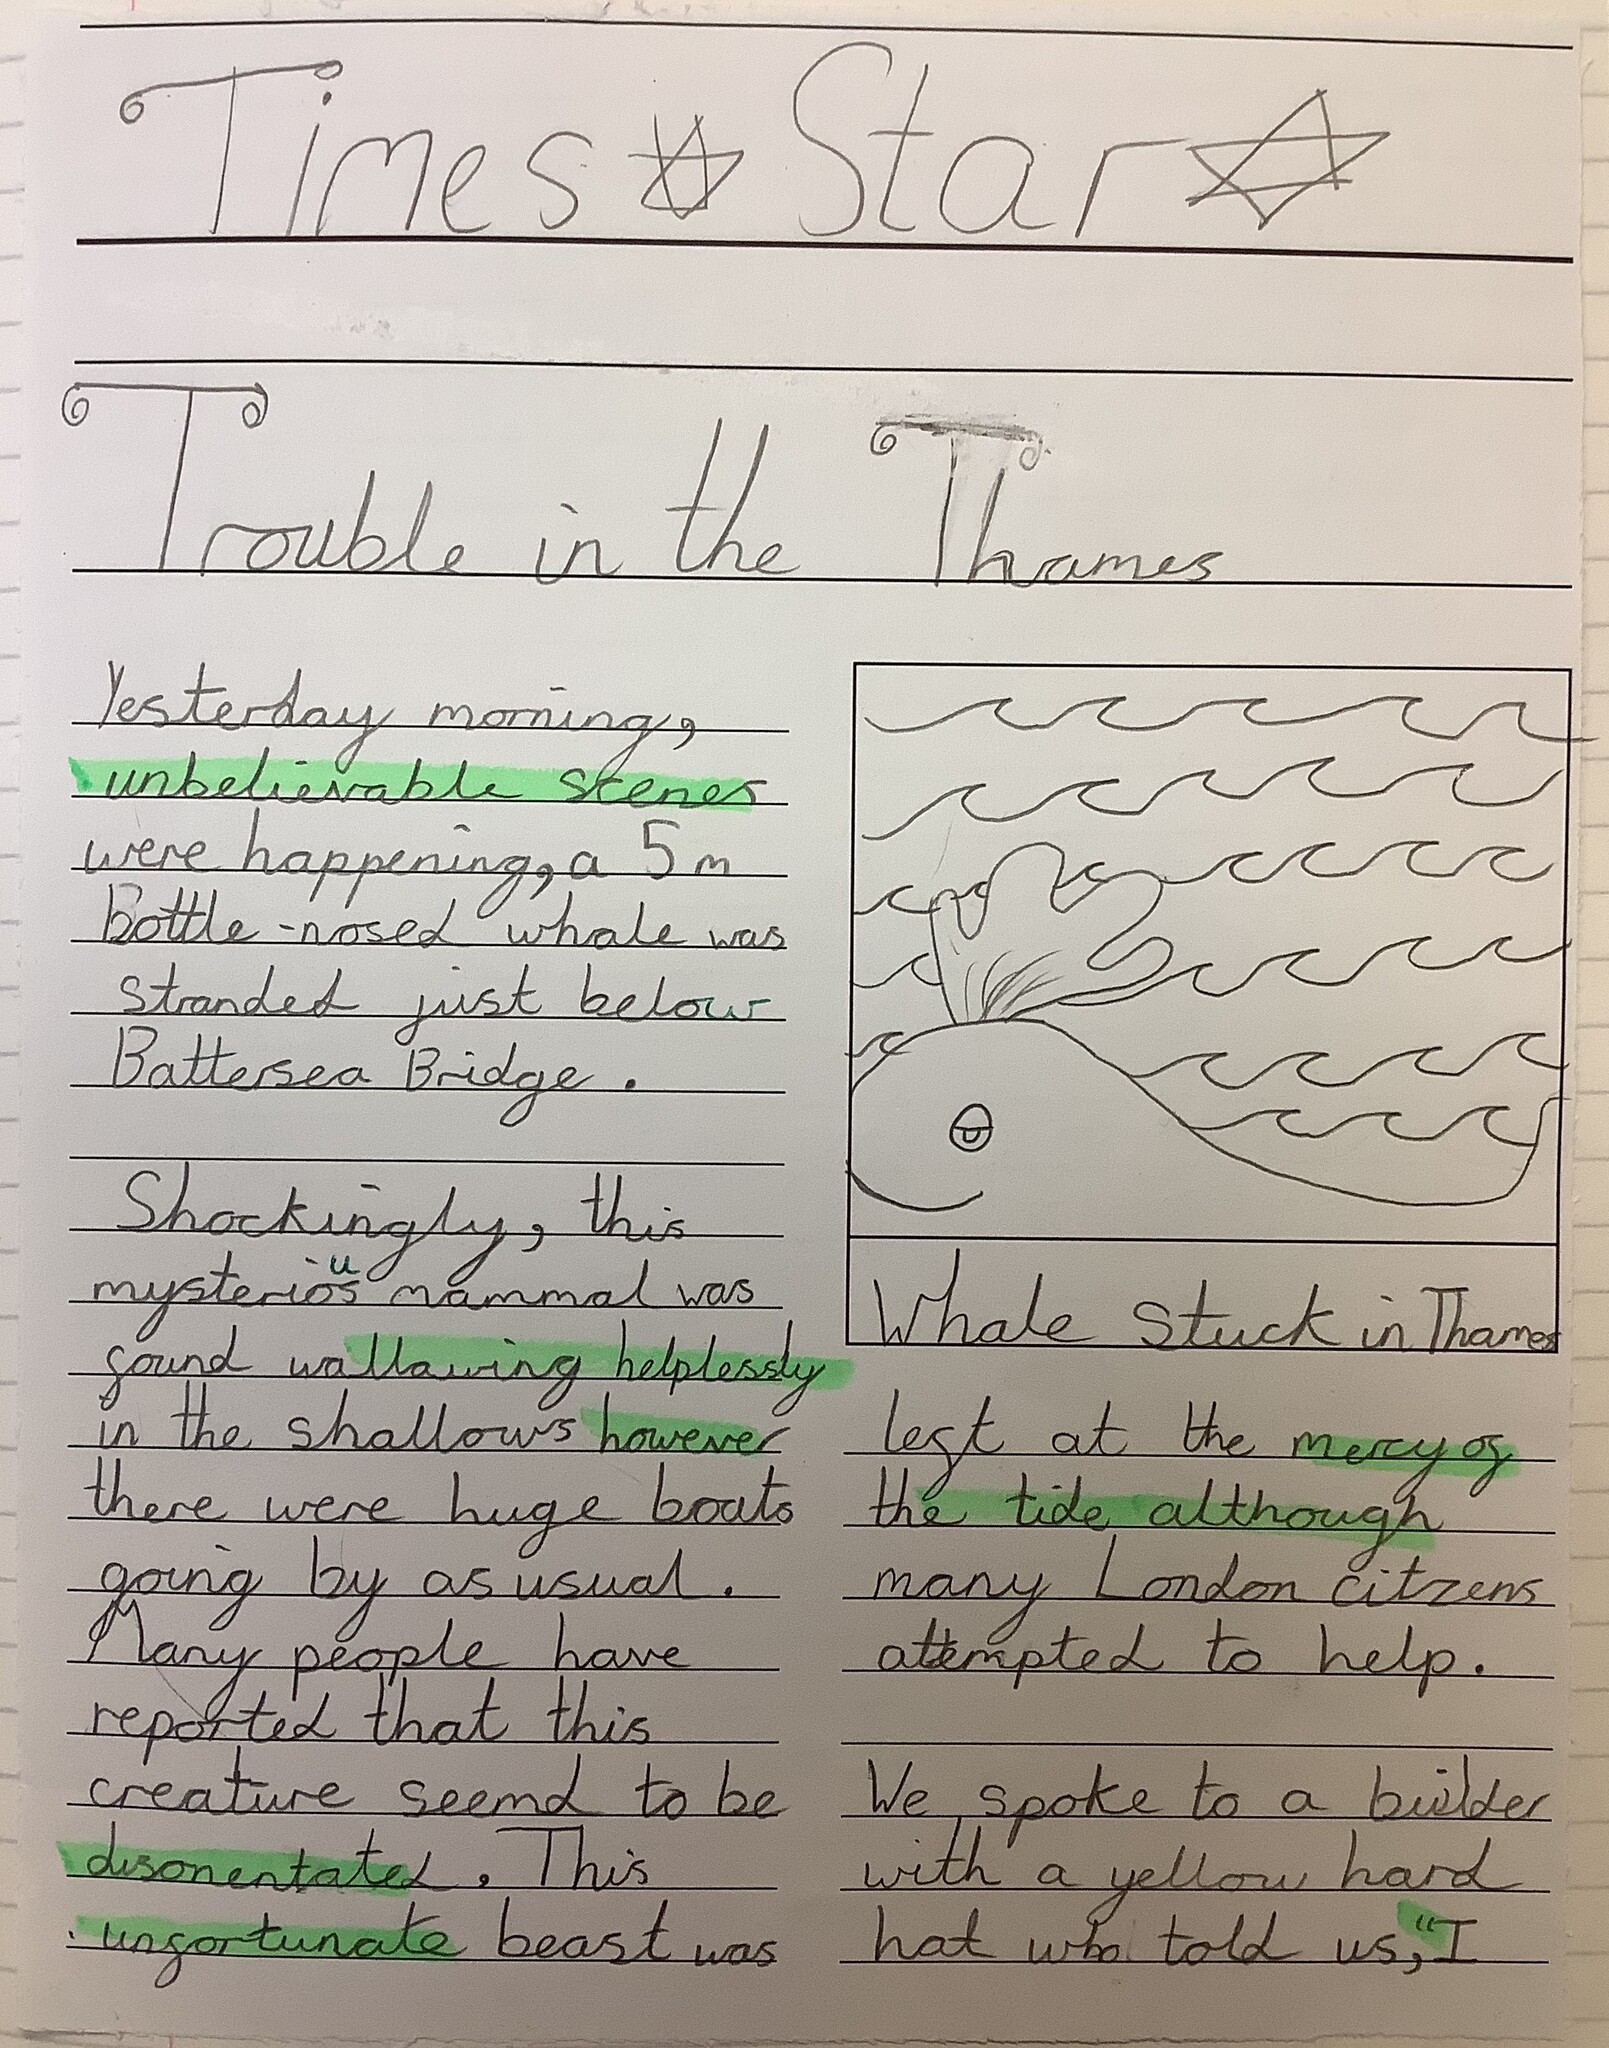 Times Star
Trouble in the Thames
Yesterday morning,
unbelievable scenes
were happening, a 5m
Bottle-nosed whale was
stranded just below
Battersea Bridge.
Shockingly, this
mysterious mammal was
found wallowing helplessly
in the shallows however
there were huge boats
going by as usual.
Many people have
reported that this
creature seemd to be
disorientated. This
unfortunate beast was
Whale stuck in Thames
left at the mercy of
the tide although
many London citzens
attempted to help.
We spoke to a builder
with a yellow hard
hat who told us, "I